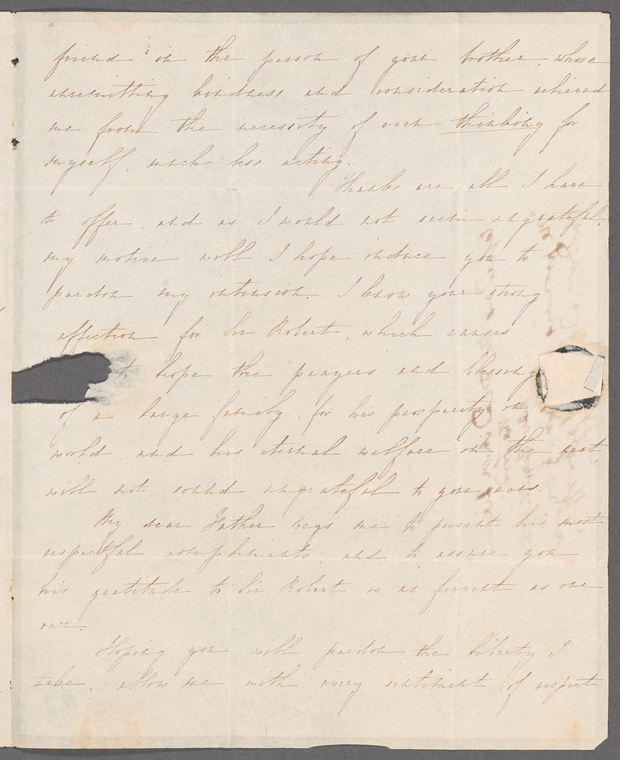 friend in the person of your brother, whose
unremitting kindness and consideration relieved
me from the necessity of even thinking for
myself, much less acting.
Thanks are all I have
to offer, and as I would not seem ungrateful,
my motive will I hope induce you to
pardon my intrusion. I know your strong
affection for Sir Robert, which causes
hope the prayers and blessing
of a large family, for his prosperity in
world and his eternal welfare in the next,
will not sound ungrateful to your ears.
My dear Father begs me to present his most
respectful compliments, and to assure you
his gratitude to Sir Robert is as fervent as our
own.
Hoping you will pardon the liberty I
take, allow me with every sentiment of respect